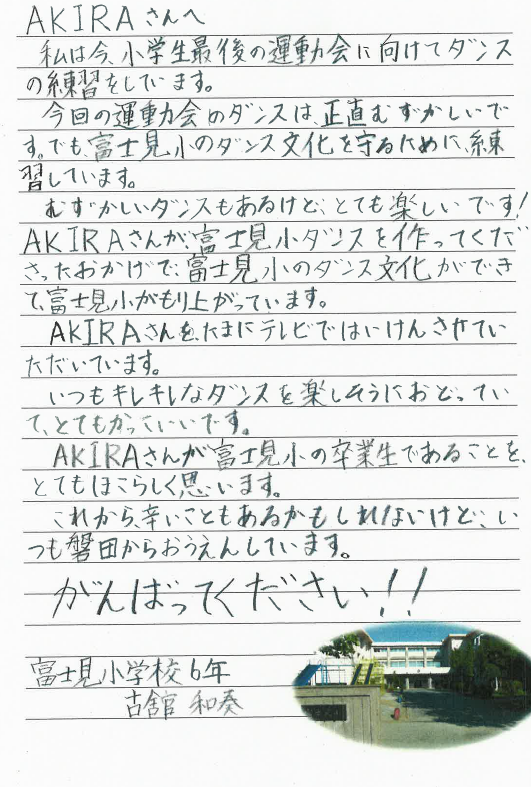 AKIRAさんへ
私は今、小学生最後の運動会に向けてダンス
の練習をしています。
今回の運動会のダンスは、正直むずかしいで
す。でも、富士見小のダンス文化を守るために、練
習しています。
むずかしいダンスもあるけど、とても楽しいです!
AKIRAさんが、富士見小ダンスを作ってくだ
さったおかげで、富士見小のダンス文化ができ
て、富士見小がもり上がっています。
AKIRAさんを、たまにテレビではいけんさせてい
ただいています。
いつもキレキレなダンスを楽しそうにおどってい
て、とてもかっこいいです。
AKIRAさんが富士見小の卒業生であることを、
とてもほこらしく思います。
これから、辛いこともあるかもしれないけど、い
つも磐田からおうえんしています。
がんばってください!!
富士見小学校6年
古舘 和奏